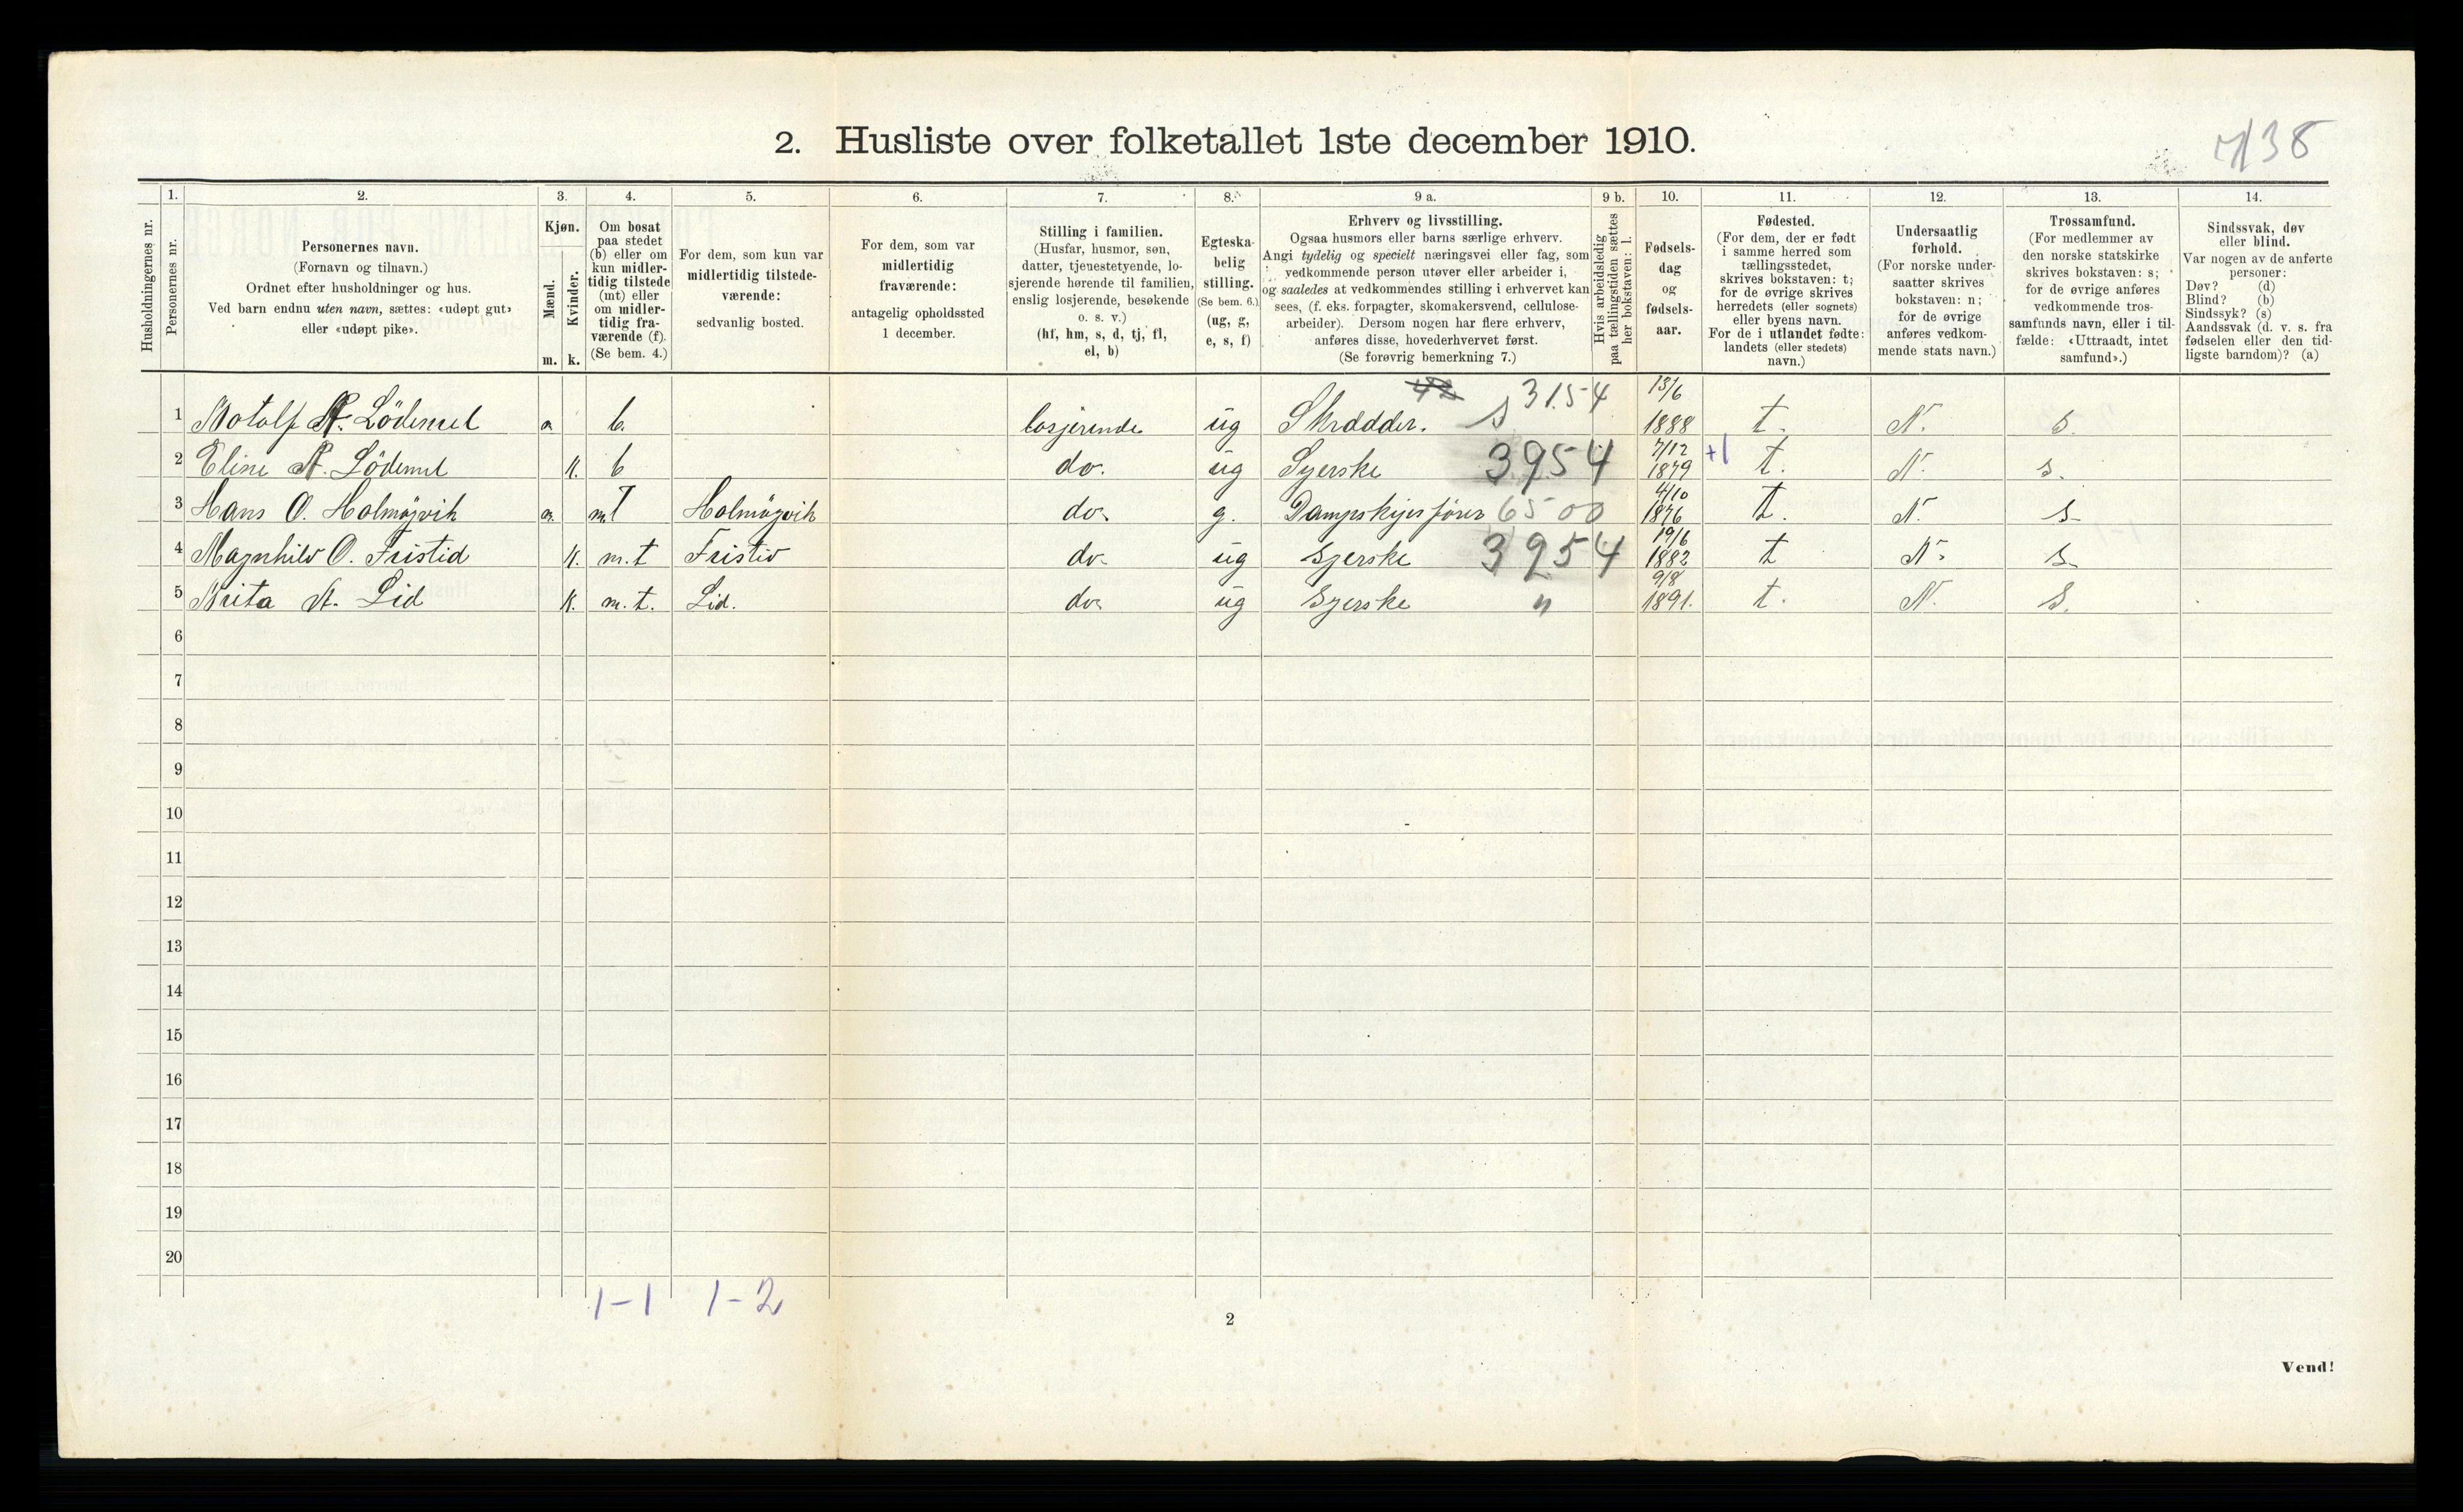 2. Husliste over folketallet 1ste december 1910.
7/38
Husholdningernes nr.
1.
Personernes nr.
2.
Personernes navn.
(Fornavn og tilnavn.)
Ordnet efter husholdninger og hus.
Ved barn endnu uten navn, sættes: «udøpt gut»
eller «udøpt pike».
3.
Kjøn.
Mænd.
Kvinder.
m. k.
4.
Om bosat
paa stedet
(b) eller om
kun midler-
tidig tilstede
(mt) eller
om midler-
tidig fra-
værende (f).
(Se bem. 4.)
5.
For dem, som kun var
midlertidig tilstede-
værende:
sedvanlig bosted.
6.
For dem, som var
midlertidig
fraværende:
antagelig opholdssted
1 december.
7.
Stilling i familien.
(Husfar, husmor, søn,
datter, tjenestetyende, lo-
sjerende hørende til familien,
enslig losjerende, besøkende
o. s. v.)
(hf, hm, s, d, tj, fl,
el, b)
8.
Egteska-
belig
stilling.
(Se bem. 6.)
(ug, g,
e, s, f)
9 a.
Erhverv og livsstilling.
Ogsaa husmors eller barns særlige erhverv.
Angi tydelig og specielt næringsvei eller fag, som
vedkommende person utøver eller arbeider i,
og saaledes at vedkommendes stilling i erhvervet kan
sees, (f. eks. forpagter, skomakersvend, cellulose-
arbeider). Dersom nogen har flere erhverv,
anføres disse, hovederhvervet først.
(Se forøvrig bemerkning 7.)
9 b.
Hvis arbeidsledig
paa tællingstiden sættes
her bokstaven: l.
10.
Fødsels-
dag
og
fødsels-
aar.
11.
Fødested.
(For dem, der er født
i samme herred som
tællingsstedet,
skrives bokstaven: t;
for de øvrige skrives
herredets (eller sognets)
eller byens navn.
For de i utlandet fødte:
landets (eller stedets)
navn.)
12.
Undersaatlig
forhold.
(For norske under-
saatter skrives
bokstaven: n;
for de øvrige
anføres vedkom-
mende stats navn.)
13.
Trossamfund.
(For medlemmer av
den norske statskirke
skrives bokstaven: s;
for de øvrige anføres
vedkommende tros-
samfunds navn, eller i til-
fælde: «Uttraadt, intet
samfund».)
14.
Sindssvak, døv
eller blind.
Var nogen av de anførte
personer:
Døv? (d)
Blind? (b)
Sindssyk? (s)
Aandssvak (d. v. s. fra
fødselen eller den tid-
ligste barndom)? (a)
1 Botolf A. Lödemel m b. losjerende ug Skrædder. s 3154 13/6 1888 t. N. s.
2 Eline A. Lödemel k. b do. ug Syerske 3954 7/12 1879 +1 t. N. s.
3 Hans O. Holmöyvik m. mT Holmöyvik do. g. Dampskipsfører 6500 4/10 1876 t. N. s.
4 Magnhild O. Fristid k. m.t Fristid do. ug Syerske 3954 19/6 1882 t N. s.
5 Brita A. Lid k. m.t. Lid. do. ug Syerske " 9/8 1891. t. N. S.
6
7
8
9
10
11
12
13
14
15
16
17
18
19
20
1-1 1-2
2
Vend!